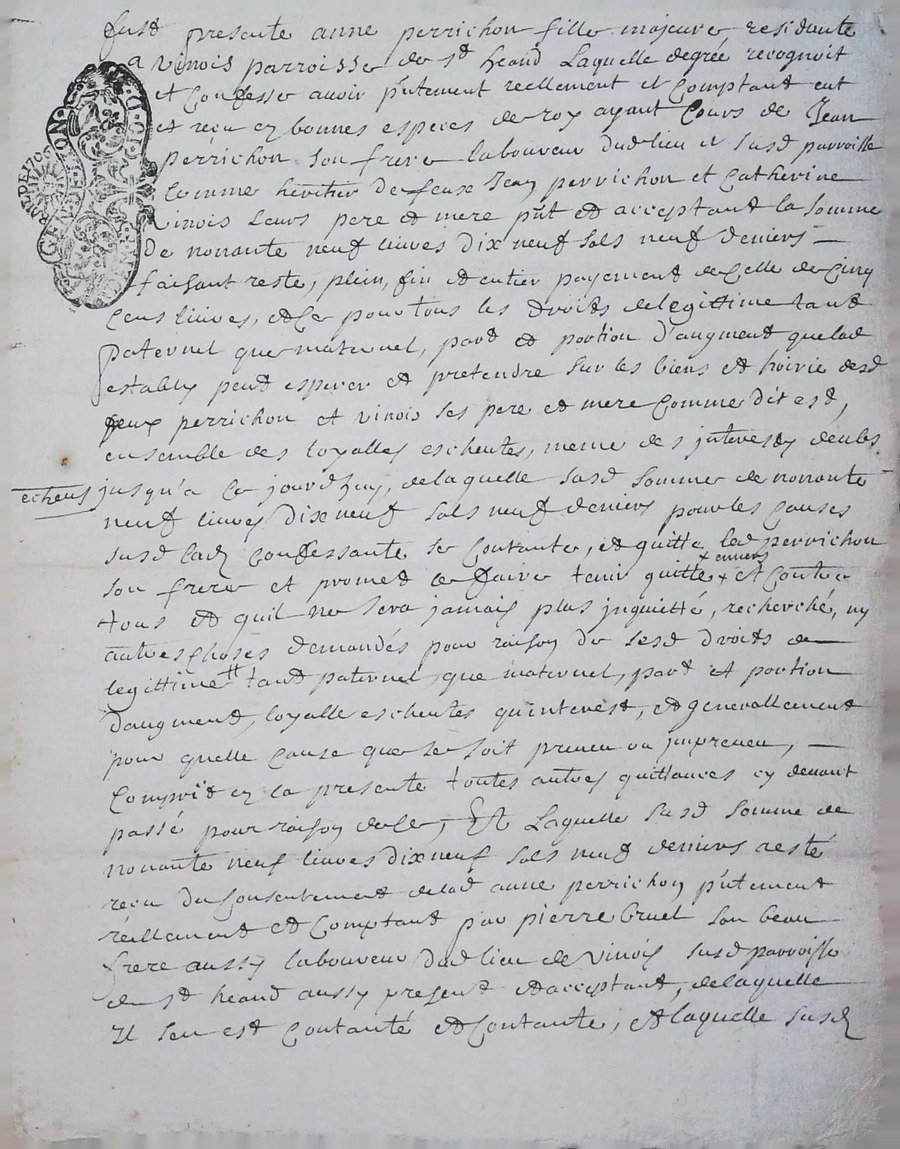 fust presente anne perrichon fille majeure residante
a vinois parroisse de st heand Laquelle degrée recognoit
et confesse avoir p'ntement reellement et comptant eut
et reçu en bonnes especes de roy ayant cours de Jean
perrichon son frere laboureur dud lieu et susd parroisse
comme heritier de feux Jean perrichon et Catherine
vinois leurs pere et mere p'nt et acceptant la somme
de nonante neuf livres dix neuf sols neuf deniers
faisant reste, plein, fin et entier payement de celle de cinq
cens livres, et ce pour tous les droits de legittime tant
paternel que maternel, part et portion d'augment que lad
establie peut esperer et pretendre sur les biens et hoirie desd
feux perrichon et vinois ses pere et mere comme dit est,
ensemble des loyalles escheutes, meme des interests d'eubs
echeus jusqu'a ce jourdhuy, de laquelle susd somme de nonante
neuf livres dix neuf sols neuf deniers pour les causes
susd lad confessante se contante, et quitte led perrichon
son frere et promet le faire tenir quitte + envers et contre
tous et quil ne sera jamais plus inquietté, recherché, ny
autres choses demandés pour raison de sesd droits de
legittime tant paternel, que maternel, part et portion
daugment, loyalle escheutes qu'interest, et generallement
pour quelle cause que se soit preveu ou impreveu,
compris en la presente toutes autres quittances cy devant
passé pour raison de ce, Et Laquelle susd somme de
nonante neuf livres dix neuf sols neuf deniers resté
reçu du consentement de lad anne perrichon p'ntement
reellement et comptant par pierre Gruel son beau
frere aussy laboureur dud lieu de vinois susd parroisse
de st heand aussy present et acceptant, de laquelle
Il sen est contanté et contante, et laquelle susd
GEN. DE LYON